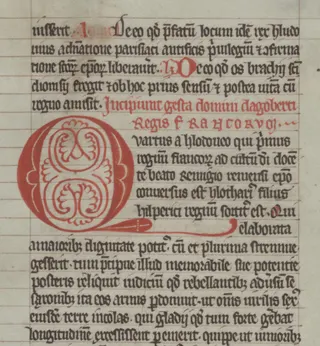 iusserit. De eo qd p̄fatū locum idē rex hludo
uius adunatione parisiaci antistitis p̄uilegiū ⁊ afirma
tione sc̄oꝝ ep̄oꝝ liberauit. De eo qd os brachij sc̄i
dionisij fregit ⁊ ob hoc prius sensū ⁊ postea vitā cū
regno amisit. Incipiunt gesta domini dagoberti
Regis FRANCORVM
Quartus a hlodoueo qui primus
regum francoꝝ ad cultū di docē
te beato remigio ep̄o
conuersus est hlotharꝰ filius
hilperici regnum sortitꝰ est. Qui
elaborata
a maioribꝫ dignitate potitꝰ cū et plurima strennue
gesserit. tum p̄cipue illud memorabile sue potentie
posteris reliquit indiciū qd rebellantibꝫ aduersū se
saxonibꝫ ita eos armis p̱domuit. ut om̄s virilis sexꝰ
eiusdē terre incolas. qui gladij quē tum forte gerebat
longitudinē excessissent peremerit. iunioribꝫ